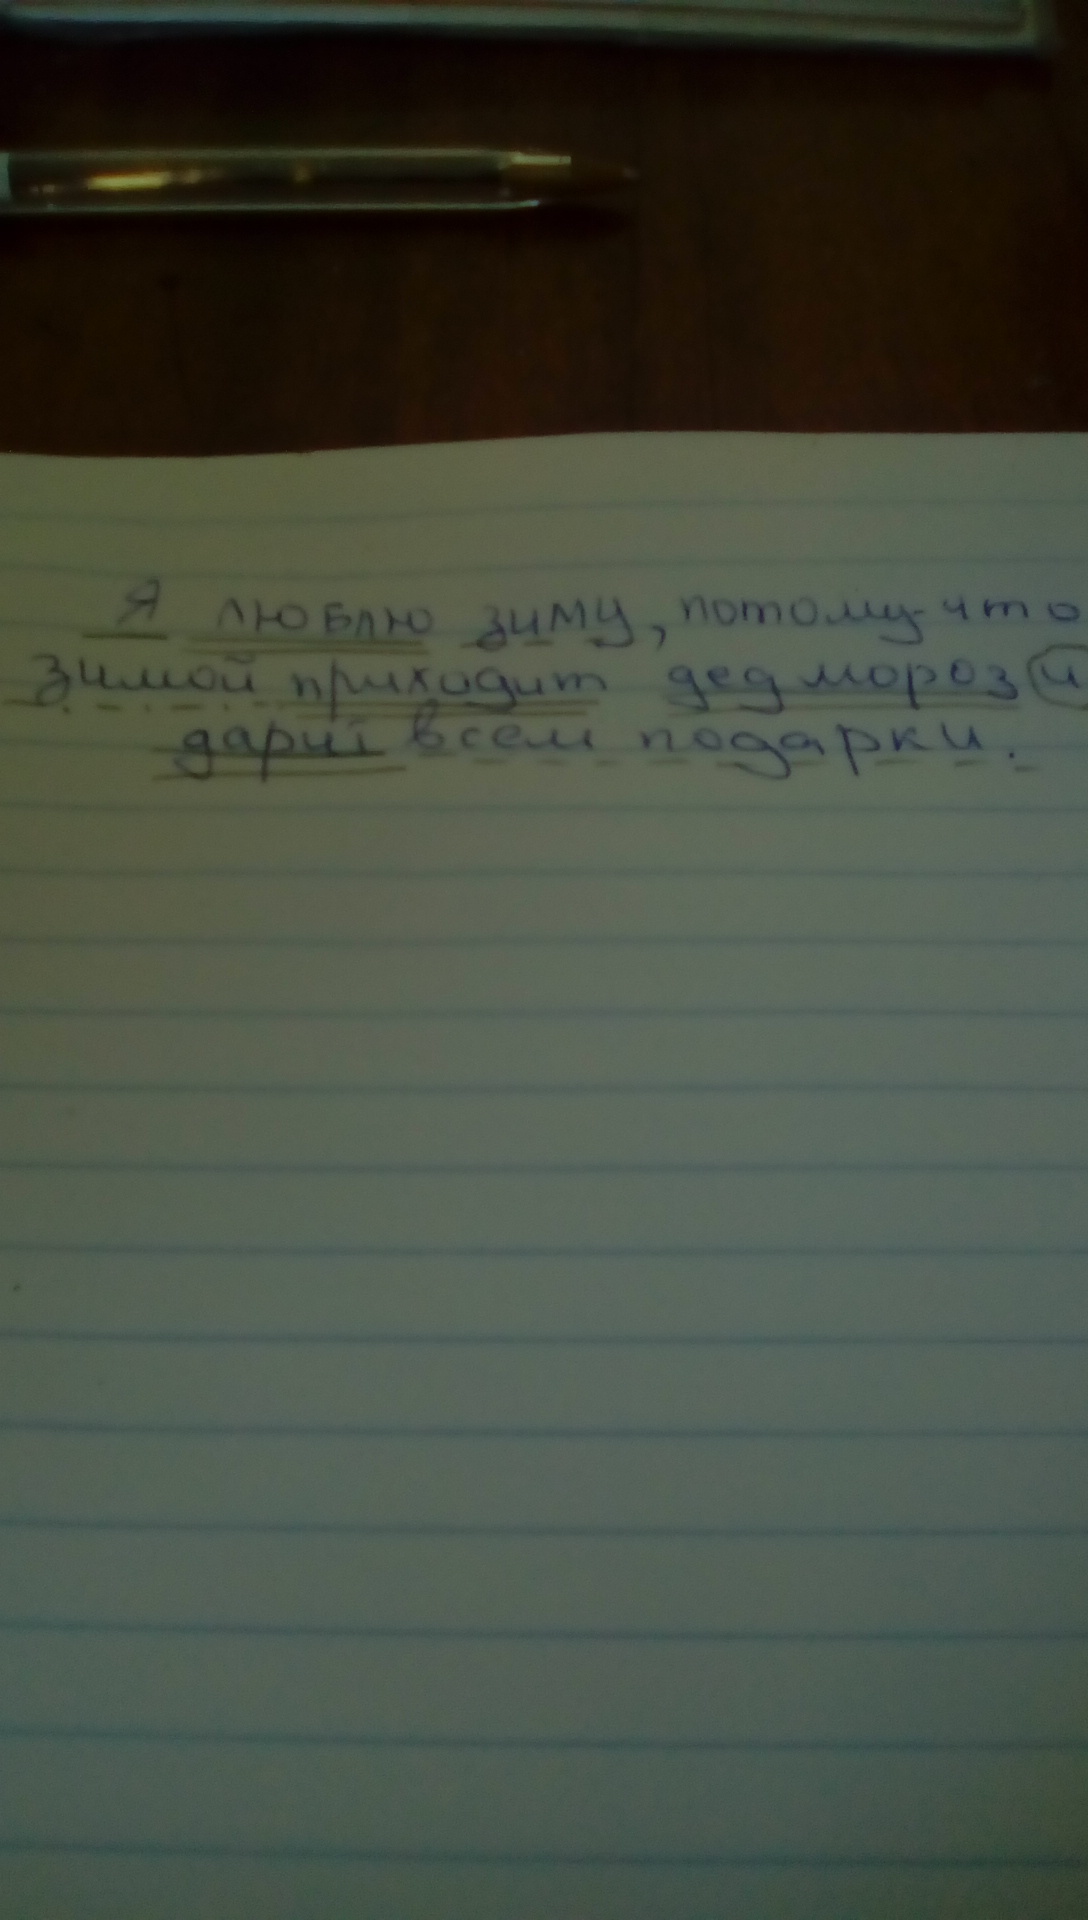 Я люблю зиму, потому-что
зимой приходит дед мороз и
дарит всем подарки.